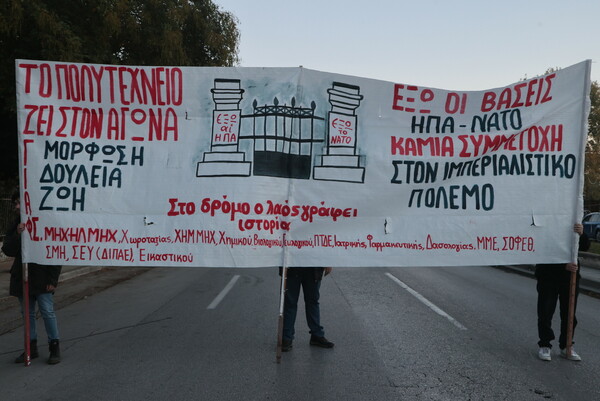 ΤΟ ΠΟΛΥΤΕΧΝΕΙΟ
ΖΕΙ ΣΤΟΝ ΑΓΩΝΑ
ΓΙΑ
ΜΟΡΦΩΣΗ
ΔΟΥΛΕΙΑ
ΖΩΗ
ΕΞΩ
ΟΙ
ΗΠΑ
ΕΞΩ
το
ΝΑΤΟ
ΕΞΩ ΟΙ ΒΑΣΕΙΣ
ΗΠΑ - ΝΑΤΟ
ΚΑΜΙΑ ΣΥΜΜΕΤΟΧΗ
ΣΤΟΝ ΙΜΠΕΡΙΑΛΙΣΤΙΚΟ
ΠΟΛΕΜΟ
Στο δρόμο ο λαός γράφει
ιστορία
Φ.Σ. ΜΗΧ, ΗΛ.ΜΗΧ, Χωροταξίας, ΧΗΜ ΜΗΧ, Χημικού, Βιολογικού, Γεωλογικού, ΠΤΔΕ, Ιατρικής, Φαρμακευτικής, Δασολογίας, ΜΜΕ, ΣΟΦΕΘ,
ΣΜΗ, ΣΕΥ (ΔΙΠΑΕ), Εικαστικού